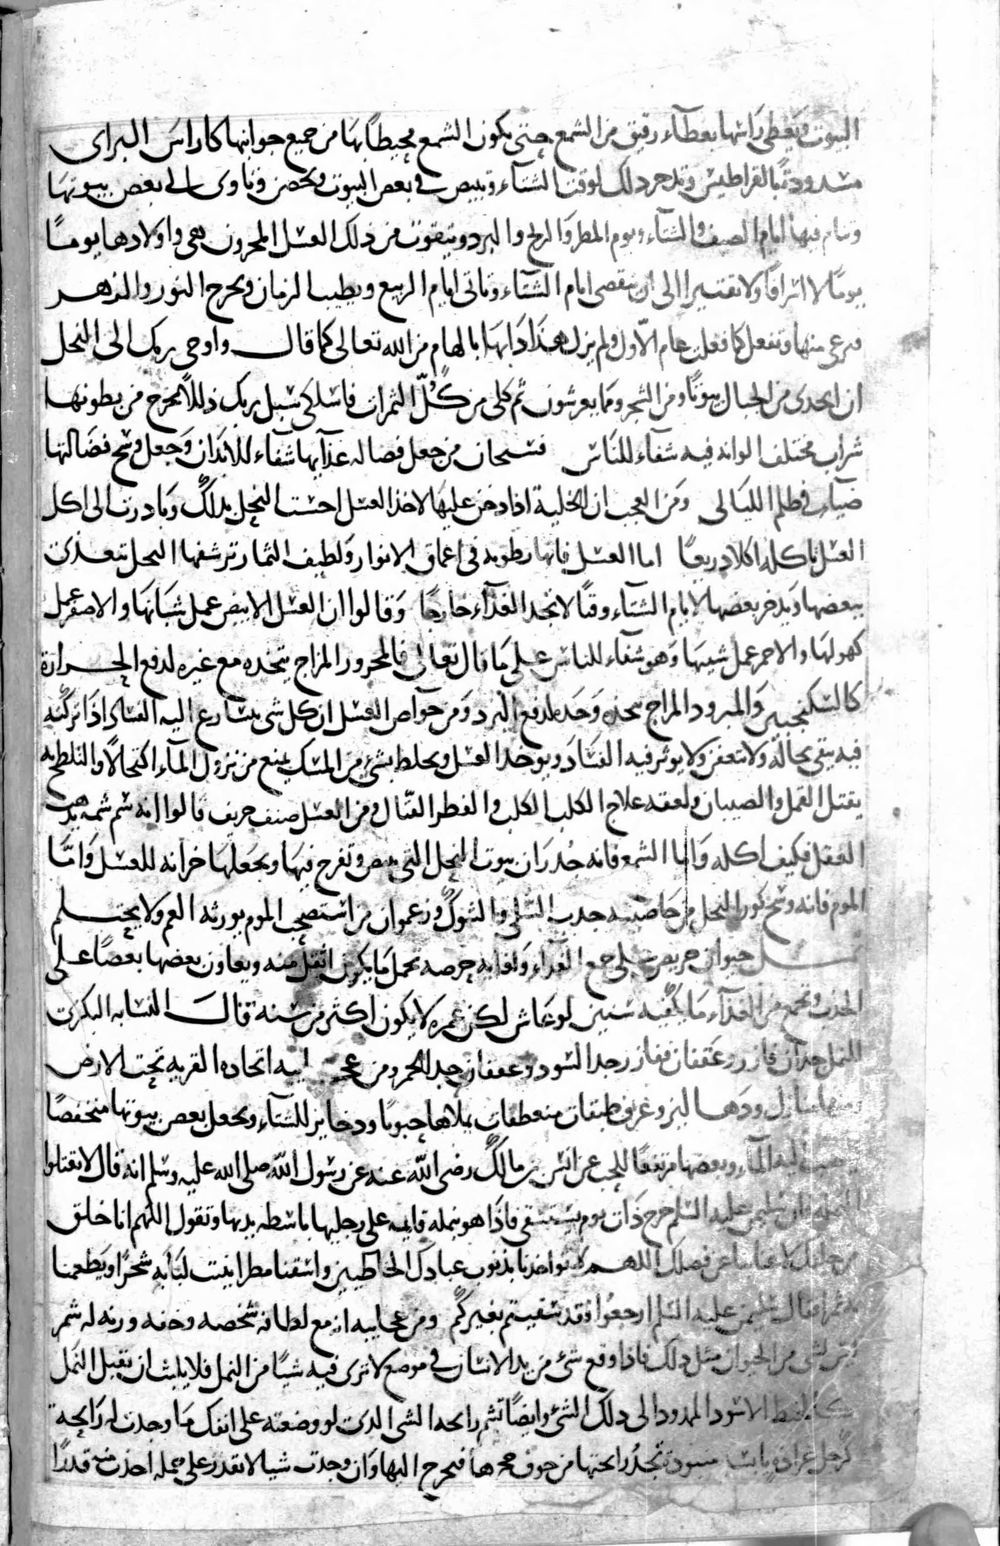 البيوت ويغطى راسها بغطاء رقيق من الشمع حتى يكون الشمع محيطا بها من جميع جوانبها كاراس البرانى
مشدودة بالقراطيس وتدخر ذلك لوقت الشتاء وتبيض فى بعض البيوت وتحضن وتاوى الى بعض بيوتها
وتنام فيها ايام الصيف والشتاء ويوم المطر والريح والبرد وتتقوت من ذلك العسل المخزون هى واولادها يوما
يوما لا اسرافا ولا تقتيرا الى ان تنقضى ايام الشتاء وتاتى ايام الربيع ويطيب الزمان ويخرج النور والزهر
فترعى منها وتفعل كما فعلت عام الاول ولم يزل هذا دابها بالهام من الله تعالى كما قال واوحى ربك الى النحل
ان اتخذى من الجبال بيوتا ومن الشجر ومما يعرشون ثم كلى من كل الثمرات فاسلكى سبل ربك ذللا يخرج من بطونها
شراب مختلف الوانه فيه شفاء للناس فسبحان من جعل فضالة غذايها شفاء للابدان وجعل وسخ فضالتها
ضياء فى ظلم الليالى ومن العجب ان الخلية اذا دخن عليها لاخذ العسل احست النحل بذلك وبادرت الى اكل
العسل تاكله اكلا ذريعا اما العسل فانها رطوبة فى اعماق الانوار ولطيف الثمار ترشفها النحل تتغذى
ببعضها وتدخر بعضها لايام الشتاء وقتا لا تجد الغذاء خارجا وقالوا ان العسل الابيض عمل شبانها والاصفر عمل
كهولها والاحمر عمل شيبها وهو شفاء للناس على ما قال تعالى فالمحرور المزاج يتخذه مع غيره لدفع الحرارة
كالسكنجبين والمبرود المزاج يتخذه وحده لدفع البرد ومن خواص العسل ان كل شى يتسارع اليه الفساد اذا تركته
فيه بقى بحاله ولا يتعفن ولا يوثر فيه الفساد ويوخذ العسل ويخلط بشى من المسك يمنع من نزول الماء اكتحالا والتلطخ به
يقتل القمل والصيبان ولعقه علاج الكلب الكلب والفطر القتال ومن العسل صنف حريف قالوا انه سم شمه يذهب
العقل فكيف اكله واما الشمع فانه جدران بيوت النحل التى تبيض وتفرخ فيها وتجعلها خزانه للعسل واما
الموم فانه وسخ كور النحل من خاصيته جذب السلى والشوك وزعموا ان من استصحب الموم يورثه الغم ولا يحتلم
حيوان حريص على جمع الغذاء ولغاية حرصه تحمل ما يكون اثقل منه ويعاون بعضها بعضا على
الجذب وتجمع من الغذاء ما يكفيه سنين لو عاش لكن عمره لا يكون اكثر من سنة قال النسابه البكرى
النمل جدان فازر وعقفان ففازر جد السود وعقفان جد الحمر ومن عجايبه اتخاذه القريه تحت الارض
منازل ودهاليز وغرف طبقات منعطفات يملاها حبوبا وذخاير للشتاء وتجعل بعض بيوتها منخفضا
اليه الماء وبعضها مرتفعا للحب عن انس بن مالك رضى الله عنه عن رسول الله صلى الله عليه وسلم انه قال لا تقتلوا
النملة فان سليمن عليه السلام خرج ذات يوم يستسقى فاذا هو بنملة قايمه على رجليها باسطة يديها وتقول اللهم انا خلق
من خلقك لا غنا لنا عن فضلك اللهم لا تواخذنا بذنوب عبادك الخاطيين واسقنا مطرا ينبت لنا به شجرا ويطعمنا
به ثمرا فقال سليمن عليه السلام ارجعوا فقد سقيتم بغيركم ومن عجايبه ان مع لطافة شخصه وخفة وزنه له شم
ليس لشى من الحيوان مثل ذلك فاذا وقع شى من يد الانسان فى موضع لا ترى فيه شيا من النمل فلا يلبث ان يقبل النمل
كالخيط الاسود الممدود الى ذلك الشى وايضا تشم رايحة الشى الذى لو وضعته على انفك ما وجدت له رايحة
كرجل جرادة يابسة منبوذة تجد رايحتها من جوف جحرها فتخرج اليها وان وجدت شيا لا تقدر على حمله اخذت منه قدرا